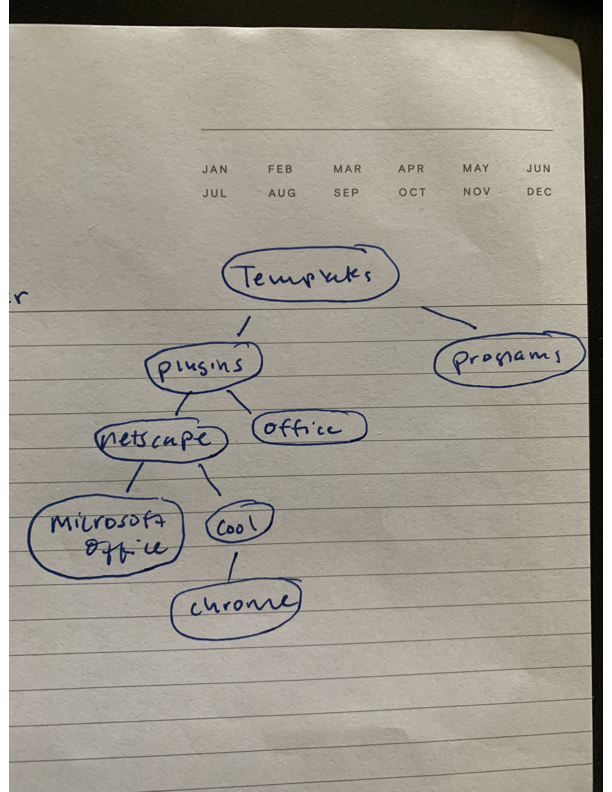 JAN FEB MAR APR MAY JUN
JUL AUG SEP OCT NOV DEC
Templates
r
plugins
programs
netscape
office
Microsoft
Office
cool
chrome